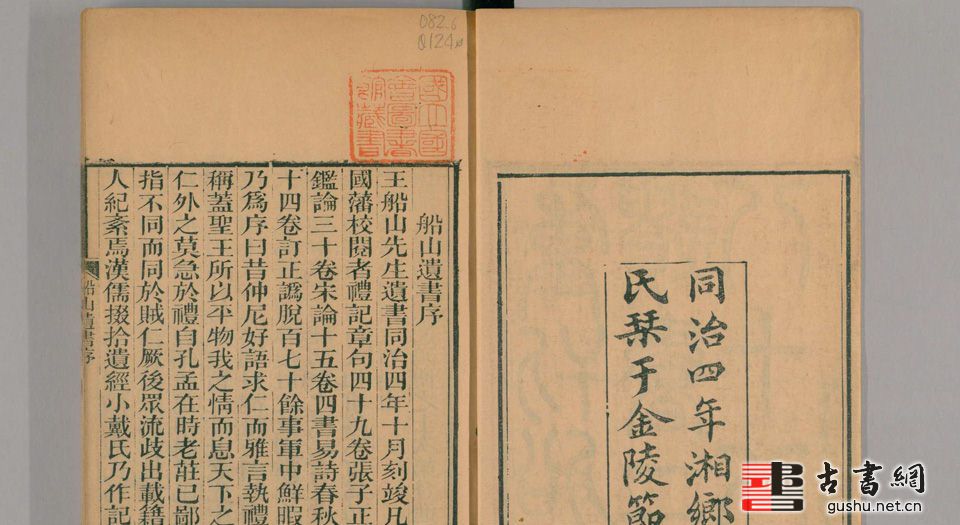 082.6
同治四年湘鄉
民栞于金陵節
國立國
會圖書
館藏書
船山遺書序
王船山先生遺書同治四年十月刻竣凡
國藩校閱者禮記章句四十九卷張子正
鑑論三十卷宋論十五卷四書易詩春秋
十四卷訂正譌脫百七十餘事軍中鮮暇
乃爲序曰昔仲尼好語求仁而雅言執禮
稱蓋聖王所以平物我之情而息天下之
仁外之莫急於禮自孔孟在時老莊已鄙
指不同而同於賊仁厥後眾流歧出載籍
人紀紊焉漢儒掇拾遺經小戴氏乃作記
船山遺書序
古書網
gushu.net.cn